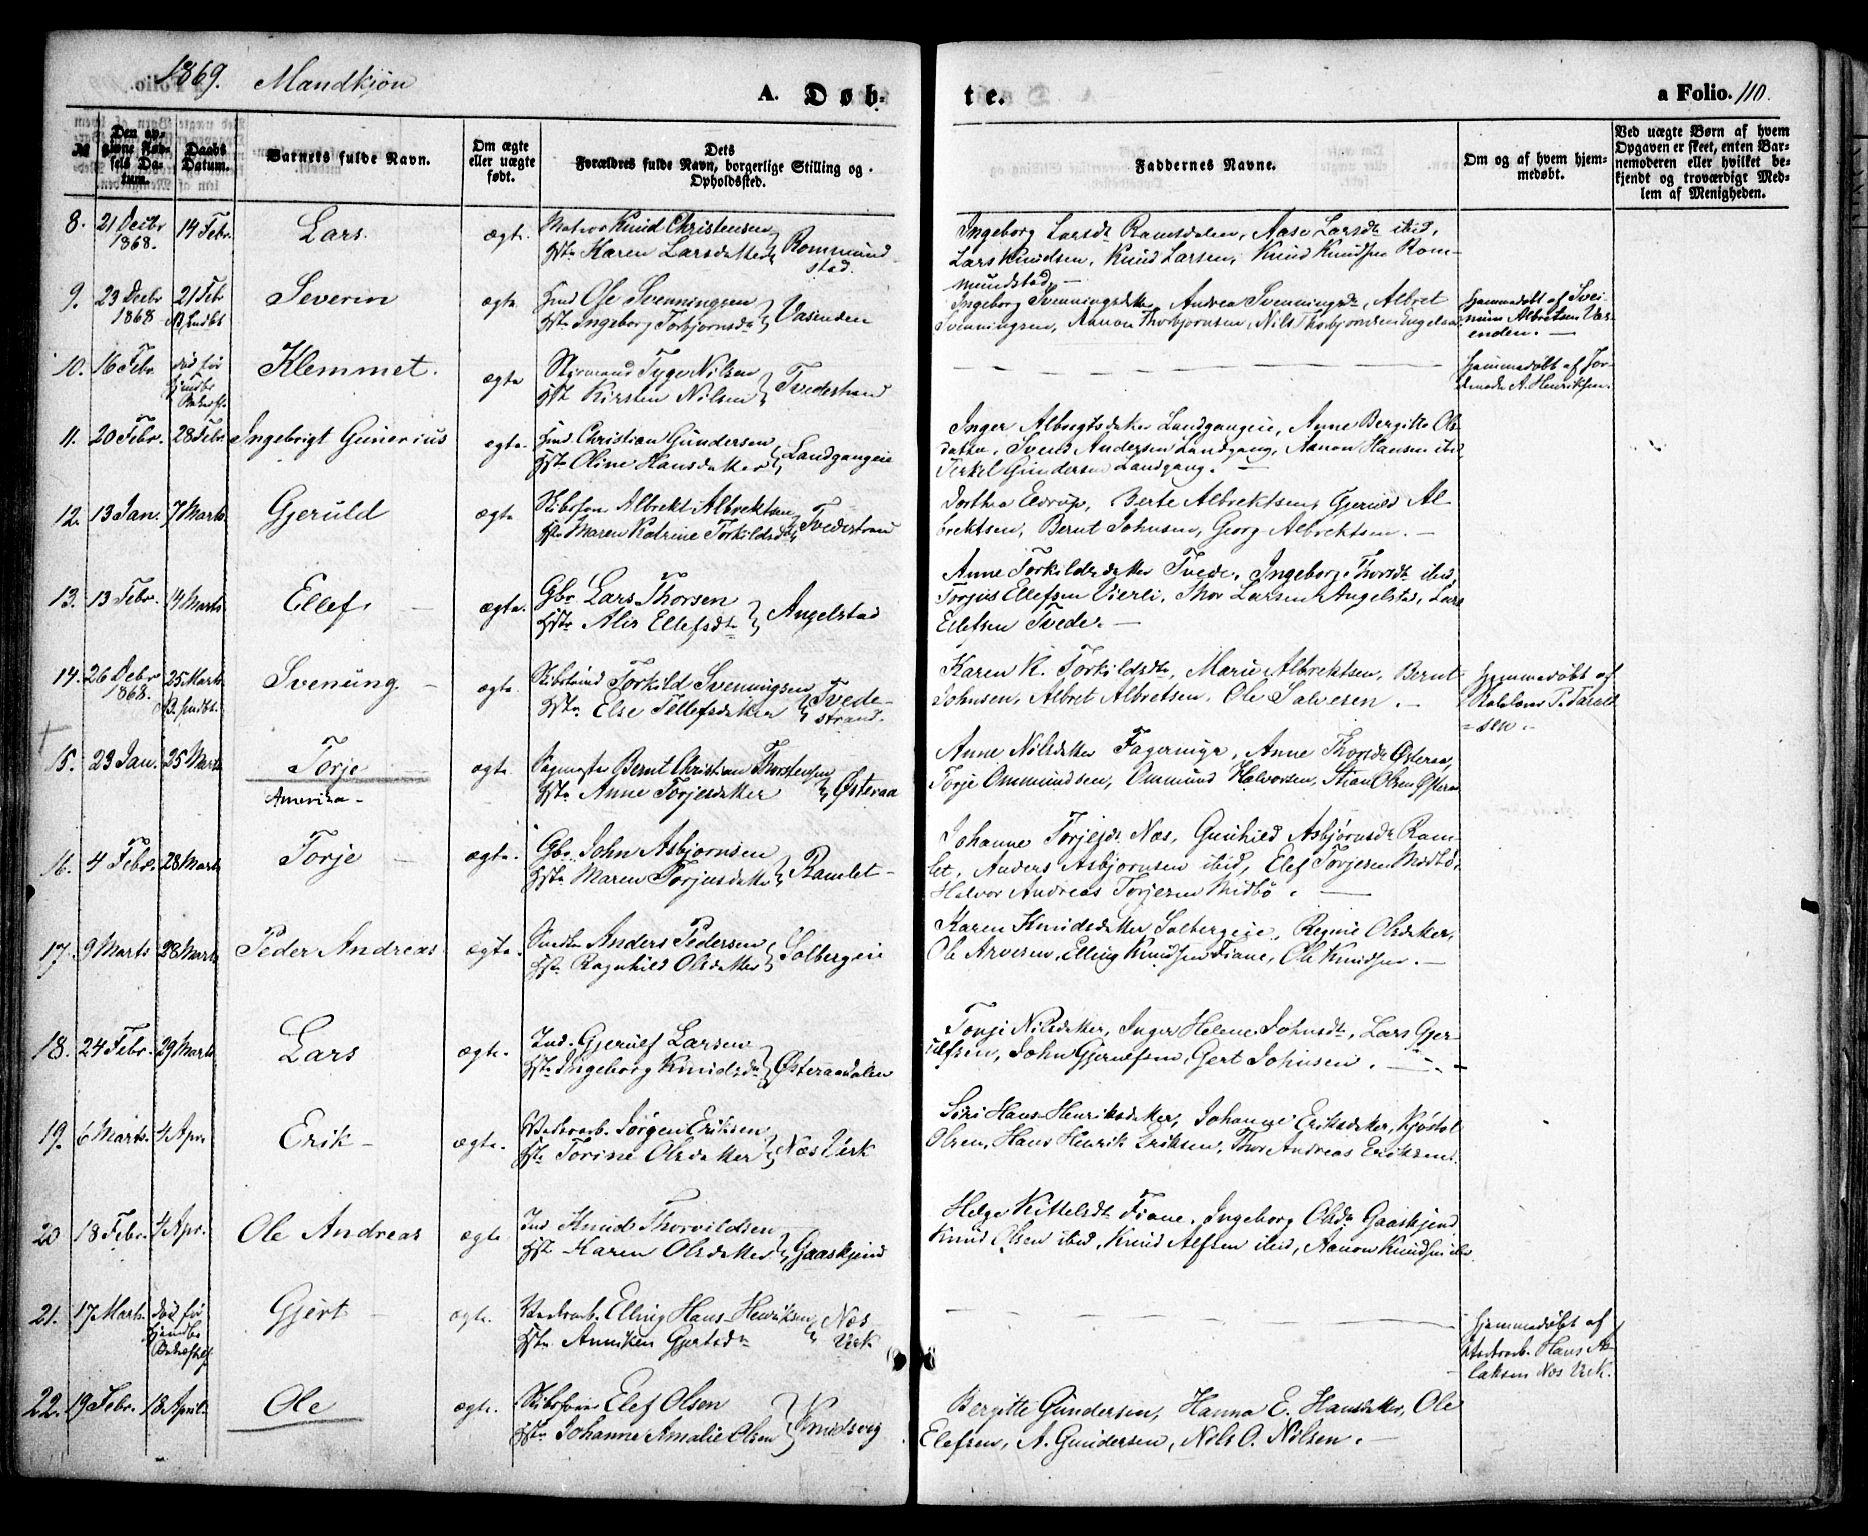 1869. Mandkjøn
A. Døb-
te.
a Folio. 110.
№
Den op-
givne Fød-
sels Da-
tum.
Daabs
Datum.
Barnets fulde Navn.
Om ægte
eller uægte
født.
Dets
Forældres fulde Navn, borgerlige Stilling og
Opholdssted.
Faddernes Navne.
Om og af hvem hjem-
medøbt.
Ved uægte Børn af hvem
Opgaven er skeet, enten Bar-
nemoderen eller hvilket be-
kjendt og troværdigt Med-
lem af Menigheden.
8. 21 Decbr 1868. 14 Febr. Lars. ægte. Knud Christensen
Karen Larsdatter Rommund
stad.
Ingeborg Larsdt Ramsdalen, Aase Larsdt ibid,
Lars Knudsen, Knud Larsen, Knud Knudsen Rom-
mundstad.
9. 23 Decbr 1868 21 Febr Severin ægte Ole Svenningsen
Ingeborg Torbjørnsdt Vasenden
Ingeborg Svenningsdatter, Andrea Svenningsdt, Albret
Svenningsen, Aanon Thorbjørnsen, Nils Thorbjørnsen
hjemmedøbt af
Albretsen Vas-
enden.
10. 16 Febr. død før Klemmet. ægte Styrmand Tyge Nilsen
Kirsten Nilsen Tvedestrand
hjemmedøbt af Jor-
demoder A. Henriksen.
11. 20 Febr. 28 Febr. Ingebrigt Gunerius ægte. Christian Gundersen
Oline Hansdatter Landgangeie
Inger Landgangeie, Anne Bergitte Ols-
datter, Svend Andersen Landgang, Aanon Hansen ibid
Terkel Gundersen Landgang.
12. 13 Jan. 7 Marts. Gjeruld ægte Albrekt Albrektsen
Maren Katrine Torkildsdt Tvedestrand
Dorthea Eldrup, Berte Albrektsen, Gjeruld Al-
brektsen, Bernt Johnsen, Georg Albrektsen.
13. 13 Febr. 14 Marts Ellef. ægte. Gbr Lars Thorsen
Ellefsdt Angelstad
Anne Torkildsdatter Tvede, Ingeborg Thorsdt ibid,
Torjus Ellefsen Vierli, Thor Larsen Angelstad, Lars
Ellefsen Tvede.
14. 26 Decbr 1868. 25 Marts Svenung ægte. Torkild Svenningsen
Else Tellefsdatter Tvede-
strand.
Karen K. Torkildsdt, Marie Albrektsen, Bernt
Johnsen, Albret Albretsen, Ole Salvesen.
hjemmedøbt af
T. Tarald
=sen.
15. 23 Jan. 25 Marts Torje ægte Bernt Christian Thorstensen
Anne Torjesdatter Østeraa
Amerika
Anne Nilsdatter Fagermyr, Anne Thorsdt Østeraa,
Torje Ommundsen, Ommund Halvorsen, Stian Olsen Østeraa
16. 4 Febr. 28 Marts Torje ægte. Gbr. John Asbjørnsen
Maren Torjusdatter Ramlet
Johanne Torjesdt Næs, Gunhild Asbjørnsdt Ram-
let, Anders Asbjørnsen ibid, Elef Torjesen Midbø,
Halvor Andreas Torjesen Midbø.
17. 9 Marts 28 Marts Peder Andreas ægte. Anders Pedersen
Ragnhild Olsdatter Solbergeie
Karen Knudsdatter Solbergeie, Regine Olsdatter,
Ole Arvesen, Elling Knudsen Fiane, Ole Knudsen.
18. 24 Febr. 29 Marts Lars ægte. Ind. Gjerulf Larsen
Ingeborg Knudsdt Østeraadalen
Tonje Nilsdatter, Inger Helene Johnsdt, Lars Gjer-
ulfsen, John Gjerulfsen, Gert Johnsen.
19. 6 Marts. 4 Apr. Erik ægte. Jørgen Eriksen
Torine Olsdatter Næs Værk
Siri Hans Henriksdatter, Johanne Eriksdatter, Kjøstol
Olsen, Hans Henrik Eriksen, Thor Andreas Eriksen.
20 18 Febr. 4 Apr. Ole Andreas ægte. Ind Knud Thorvildsen
Karen Olsdatter Gaaskjend
Helge Kitteldt Fiane, Ingeborg Olsdt Gaaskjend
Knud Olsen ibid, Knud Alfsen ibid, Aanon Knudsen ibid
21. 17 Marts. død før Gjert ægte. Elling Hans Henriksen
Anniken Gjertsdt Næs
Værk
hjemmedøbt af
Hans As-
laksen Næs Værk.
22. 19 Febr. 18 April. Ole ægte. Elef Olsen
Johanne Amalie Olsen Knudsvig
Bergitte Gundersen, Hanna E. Hansdatter, Ole
Elefsen, A. Gundersen, Nils O. Nilsen.